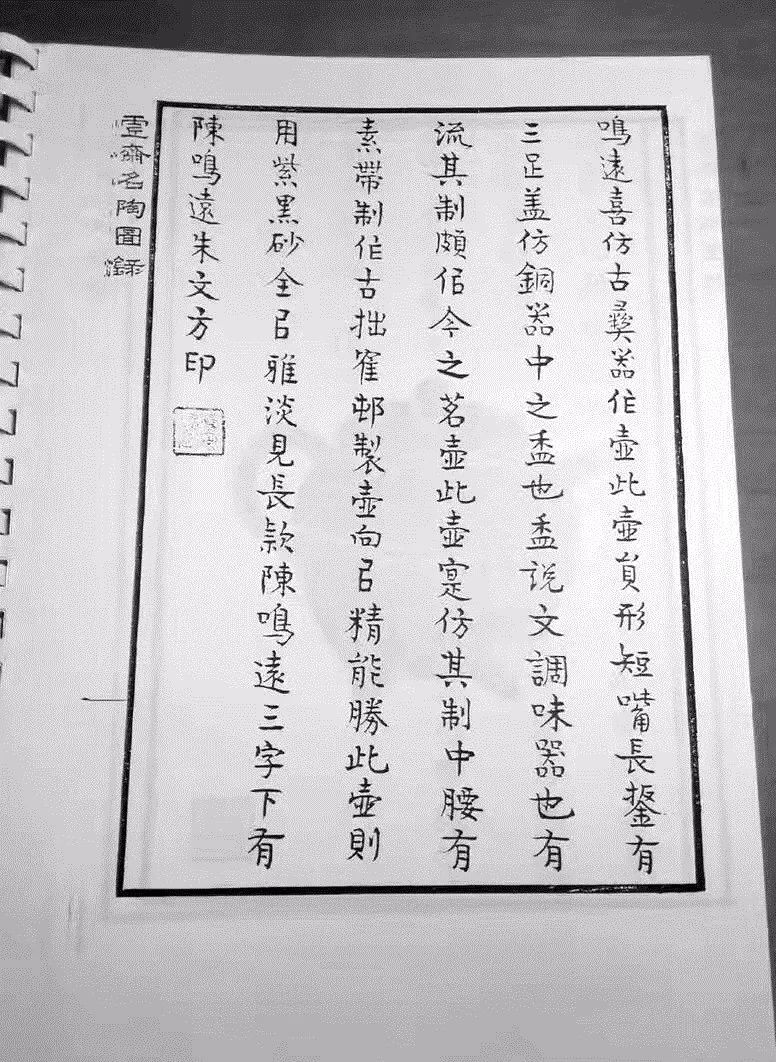 鳴遠喜仿古彝器作壺此壺員形短嘴長鋬有
三足盖仿銅器中之盉也盉説文調味器也有
流其制頗佀今之茗壺此壺寔仿其制中腰有
素帶制作古拙隺邨製壺向㠯精能勝此壺則
用紫黑砂全㠯雅淡見長款陳鳴遠三字下有
陳鳴遠朱文方印
霝齋名陶圖錄